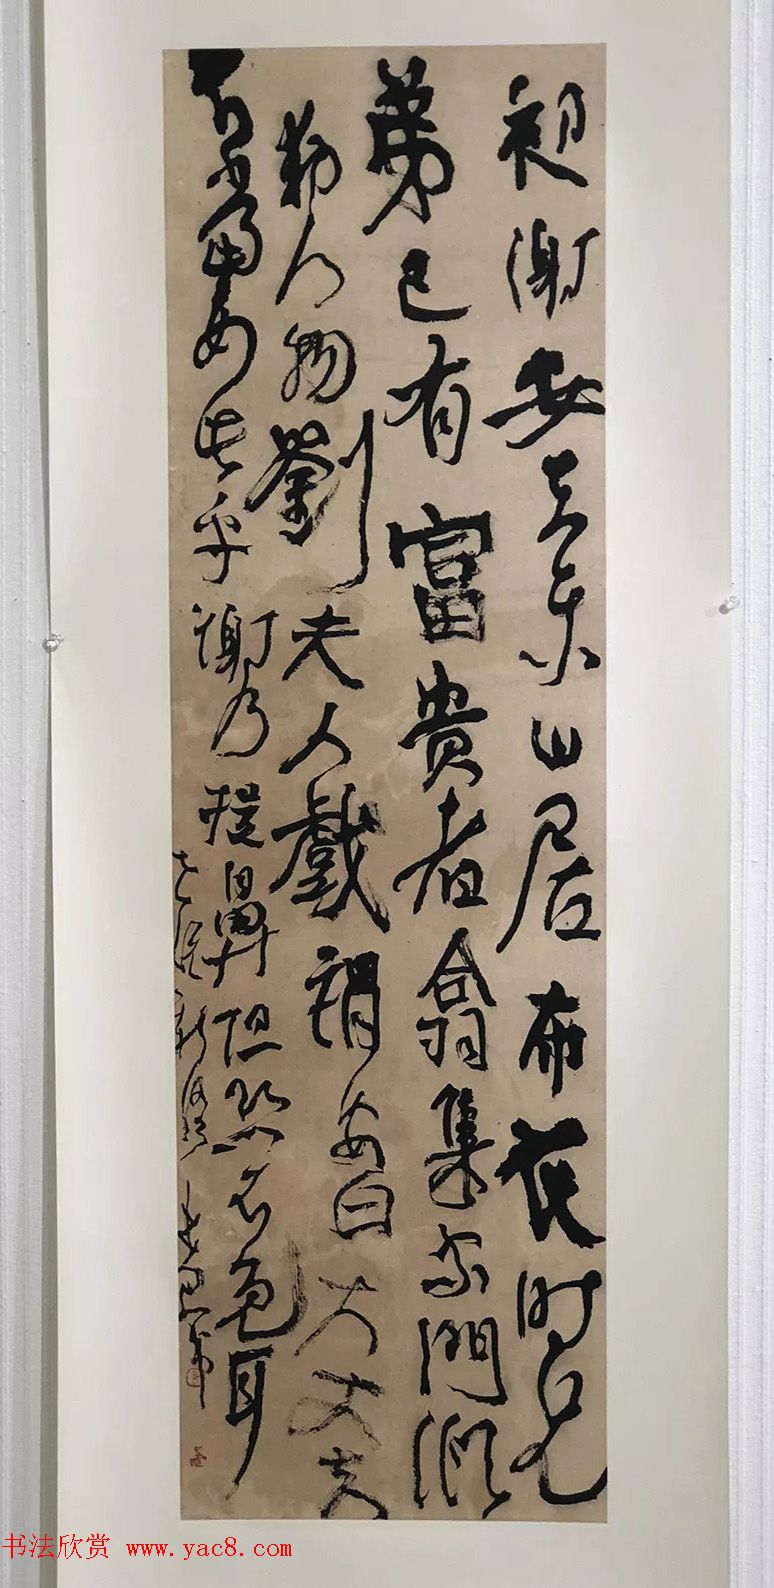 初謝安在東山居布衣時兄
弟已有富貴者翕集家門傾
動人物劉夫人戲謂安曰大丈夫
不當如此乎謝乃捉鼻但恐不免耳
书法欣赏 www.yac8.com